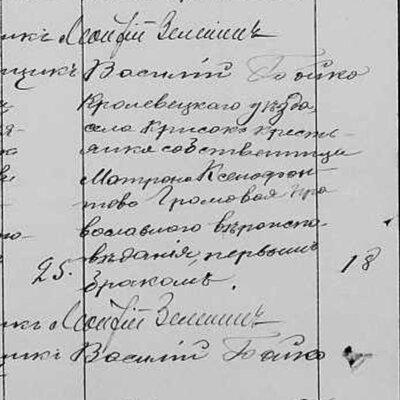 икъ Леонтій Зеленинъ
щикъ Василій Бойко
Кролевецкаго уѣзда,
села Крисокъ кресть-
янка собственница
Матрона Ксенофон-
това Громовая пра
вославнаго вѣроиспо-
вѣданія, первымъ
25. бракомъ. 18
икъ Леонтій Зеленинъ
щикъ Василій Бойко